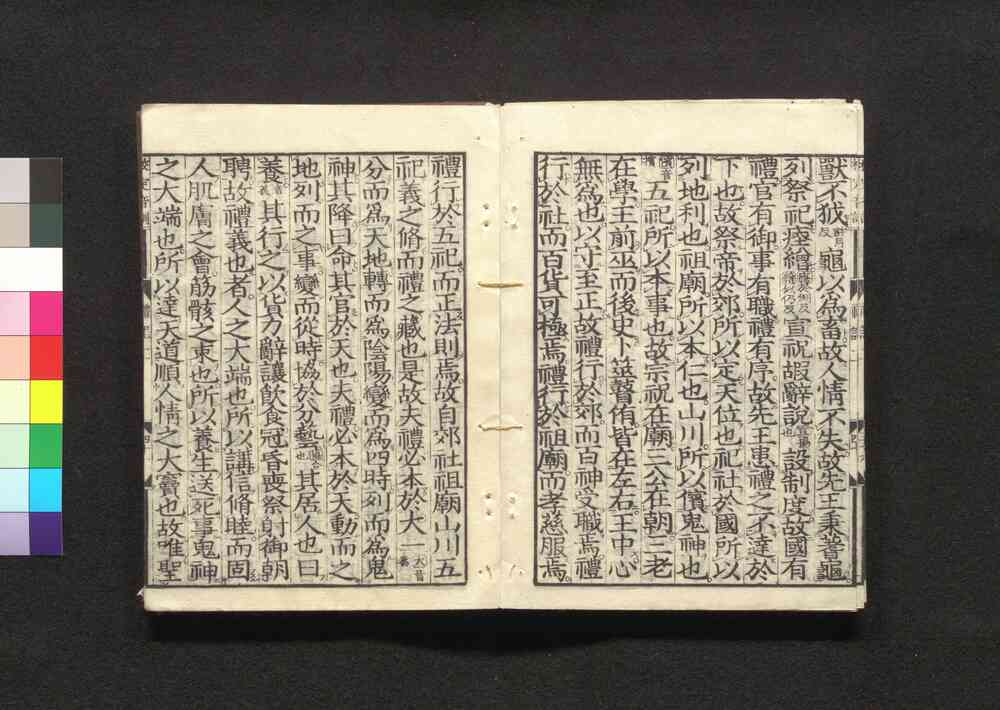 獸不狘龜以為畜故人情不失故先王秉蓍龜
列祭祀瘞繒宣祝嘏辭說設制度故國有
禮官有御事有職禮有序故先王患禮之不達於
下也故祭帝於郊所以定天位也祀社於國所以
列地利也祖廟所以本仁也山川所以儐鬼神也
五祀所以本事也故宗祝在廟三公在朝三老
在學王前巫而後史卜筮瞽侑皆在左右王中心
無為也以守至正故禮行於郊而百神受職焉禮
行於社而百貨可極焉禮行於祖廟而孝慈服焉
禮行於五祀而正法則焉故自郊社祖廟山川五
祀義之脩而禮之藏也是故夫禮必本於大一
分而為天地轉而為陰陽變而為四時列而為鬼
神其降曰命其官於天也夫禮必本於天動而之
地列而之事變而從時協於分藝其居人也曰
養其行之以貨力辭讓飲食冠昏喪祭射御朝
聘故禮義也者人之大端也所以講信脩睦而固
人肌膚之會筋骸之束也所以養生送死事鬼神
之大端也所以達天道順人情之大寶也故唯聖